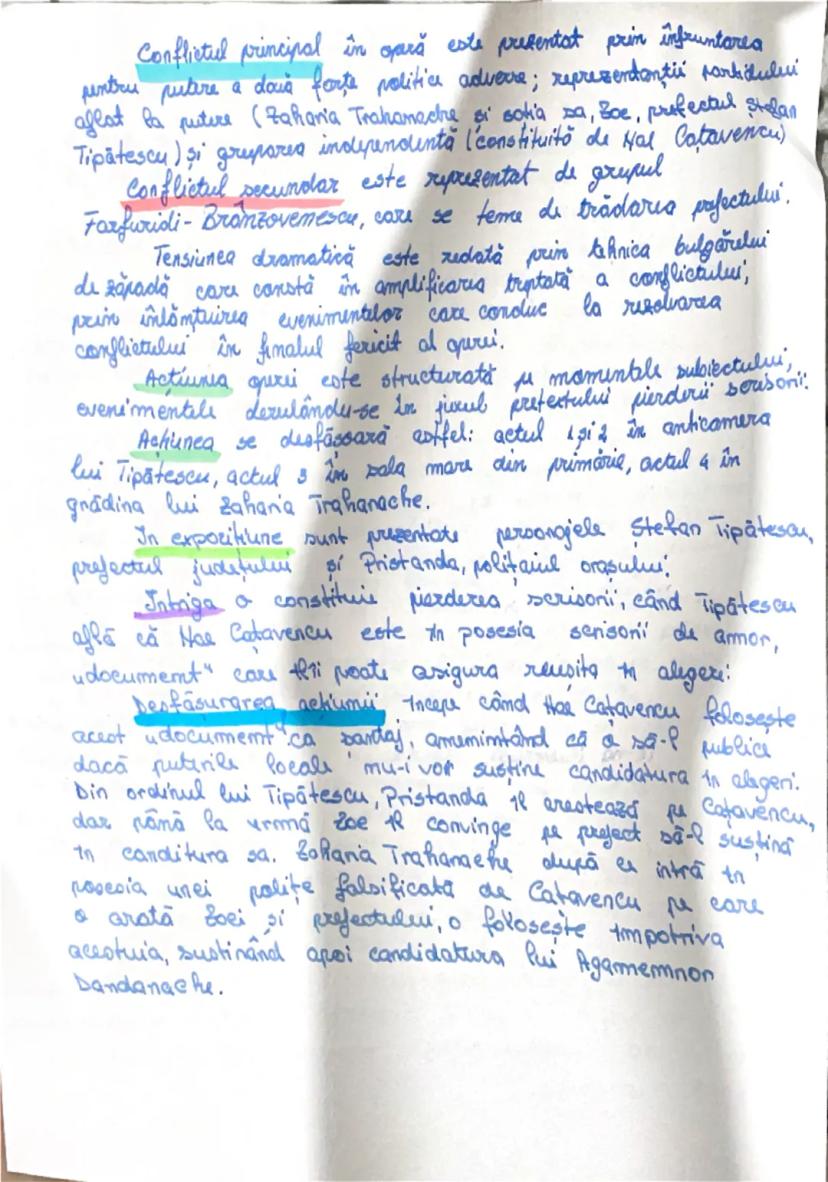 Conflictul principal în operă este prezentat prin înfruntarea
pentru putere a două forțe politice adverse; reprezentanții partidului
aflat la putere (Zaharia Trahanache și soția sa, Zoe, prefectul Ștefan
Tipătescu) și gruparea independentă (constituită de Nae Cațavencu)
Conflictul secundar este reprezentat de grupul
Farfuridi - Brânzovenescu, care se teme de trădarea prefectului.
Tensiunea dramatică este redată prin tehnica bulgărelui
de zăpadă care constă în amplificarea treptată a conflictului,
prin înlănțuirea evenimentelor care conduc la rezolvarea
conflictului în finalul fericit al operei.
Acțiunea operei este structurată pe momentele subiectului,
evenimentele derulându-se în jurul pretextului pierderii scrisorii.
Acțiunea se desfășoară astfel: actul 1 și 2 în anticamera
lui Tipătescu, actul 3 în sala mare din primărie, actul 4 în
grădina lui Zaharia Trahanache.
În expozițiune sunt prezentate personajele Ștefan Tipătescu,
prefectul județului și Pristanda, polițaiul orașului.
Intriga o constituie pierderea scrisorii, când Tipătescu
află că Nae Cațavencu este în posesia scrisorii de amor,
„document" care îi poate asigura reușita în alegeri.
Desfășurarea acțiunii începe când Nae Cațavencu folosește
acest „document" ca șantaj, amenințând că o să-l publice
dacă puterile locale nu-i vor susține candidatura în alegeri.
Din ordinul lui Tipătescu, Pristanda îl arestează pe Cațavencu,
dar până la urmă Zoe îl convinge pe prefect să-l susțină
în canditura sa. Zaharia Trahanache după ce intră în
posesia unei polițe falsificată de Cațavencu pe care
o arată Zoei și prefectului, o folosește împotriva
acestuia, susținând apoi candidatura lui Agamemnon
Dandanache.